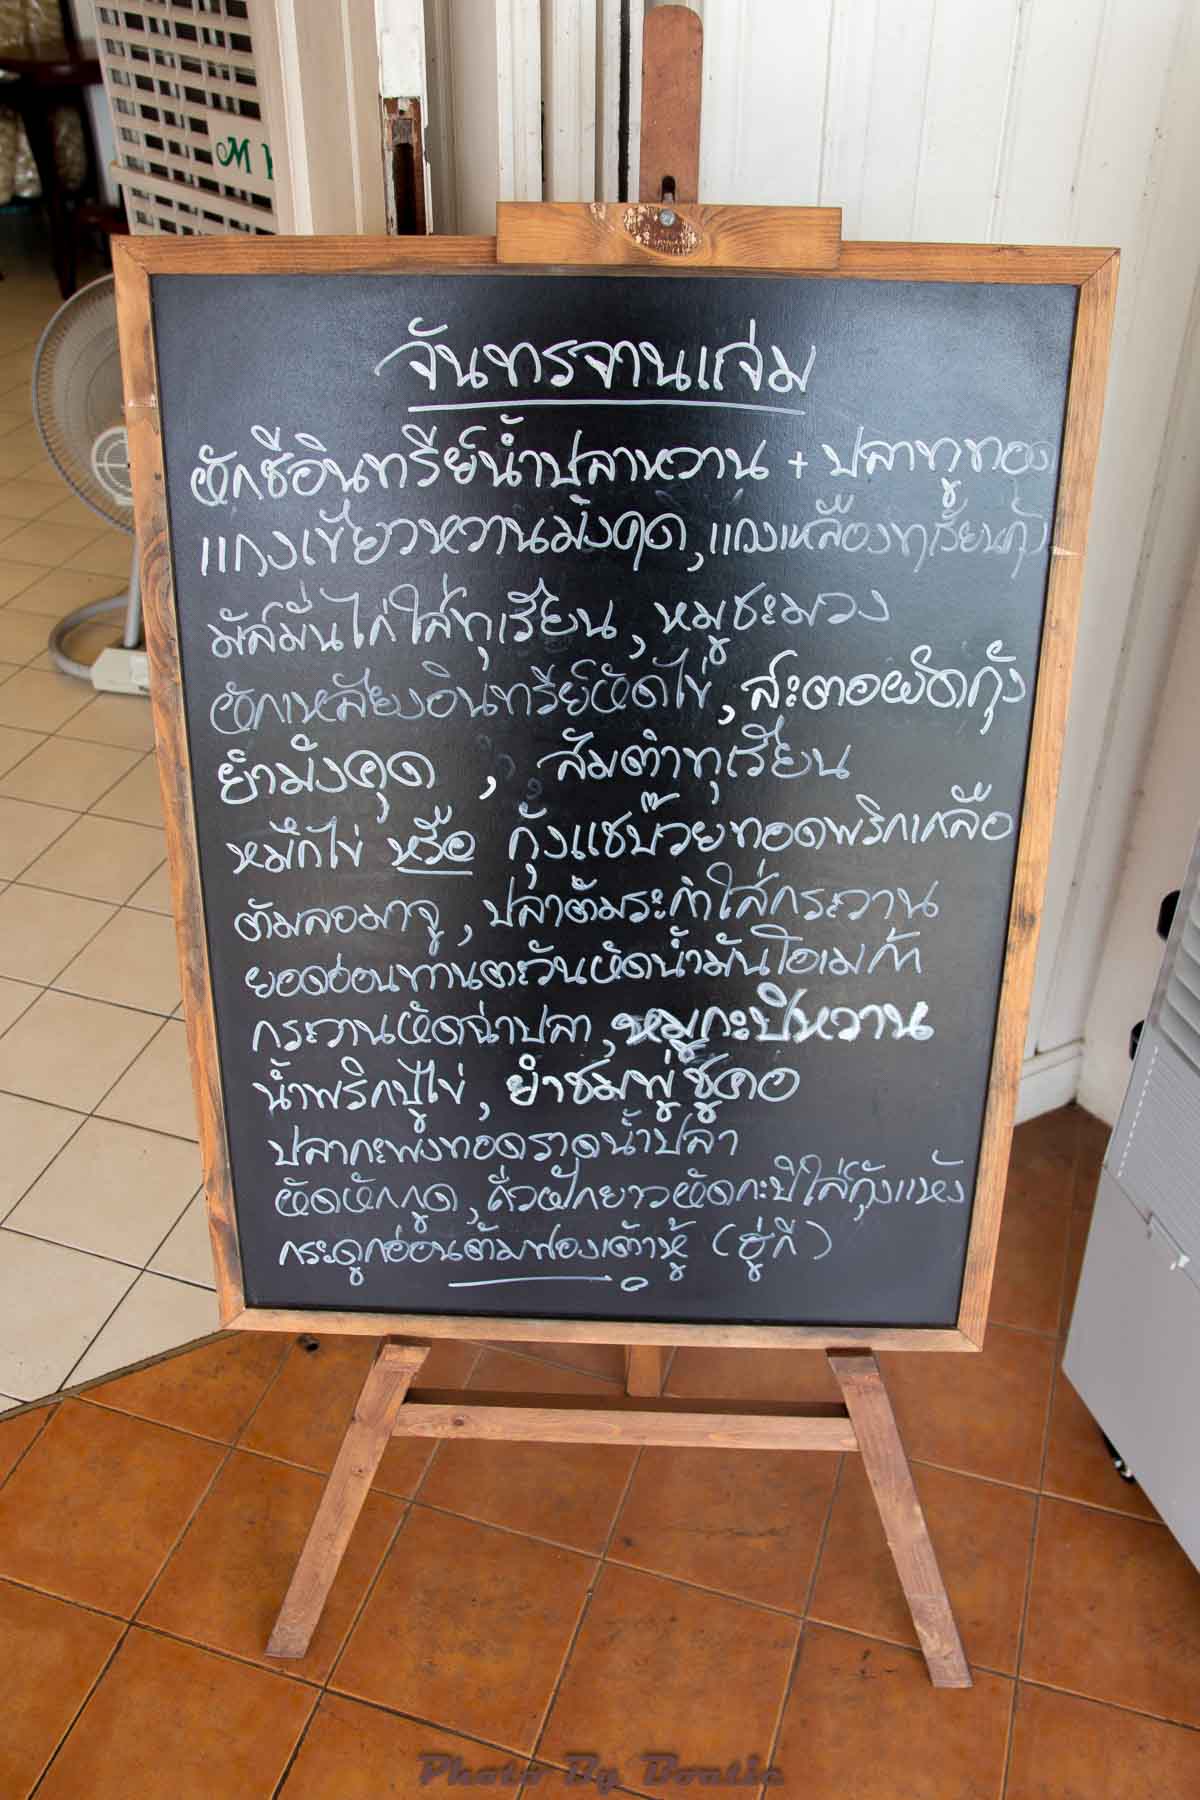 M
จันทรจานแจ่ม
ผักชีอินทรีย์น้ำปลาหวาน + ปลาทูทอด
แกงเขียวหวานมังคุด, แกงเหลืองทุเรียนกุ้ง
มัสมั่นไก่ใส่ทุเรียน, หมูชะมวง
ผักเหลียงอินทรีย์ผัดไข่, สะตอผัดกุ้ง
ยำมังคุด , ส้มตำทุเรียน
หมึกไข่ หรือ กุ้งแชบ๊วยทอดพริกเกลือ
ต้มลอมาจู, ปลาต้มระกำใส่กระวาน
ยอดอ่อนทานตะวันผัดน้ำมันโอเมก้า
กระวานผัดฉ่าปลา, หมูกะปิหวาน
น้ำพริกปูไข่, ยำชมพู่ชูคอ
ปลากะพงทอดราดน้ำปลา
ผัดผักกูด, ถั่วฝักยาวผัดกะปิใส่กุ้งแห้ง
กระดูกอ่อนต้มฟองเต้าหู้ (ฮู่กี่)
Photo By Boatie